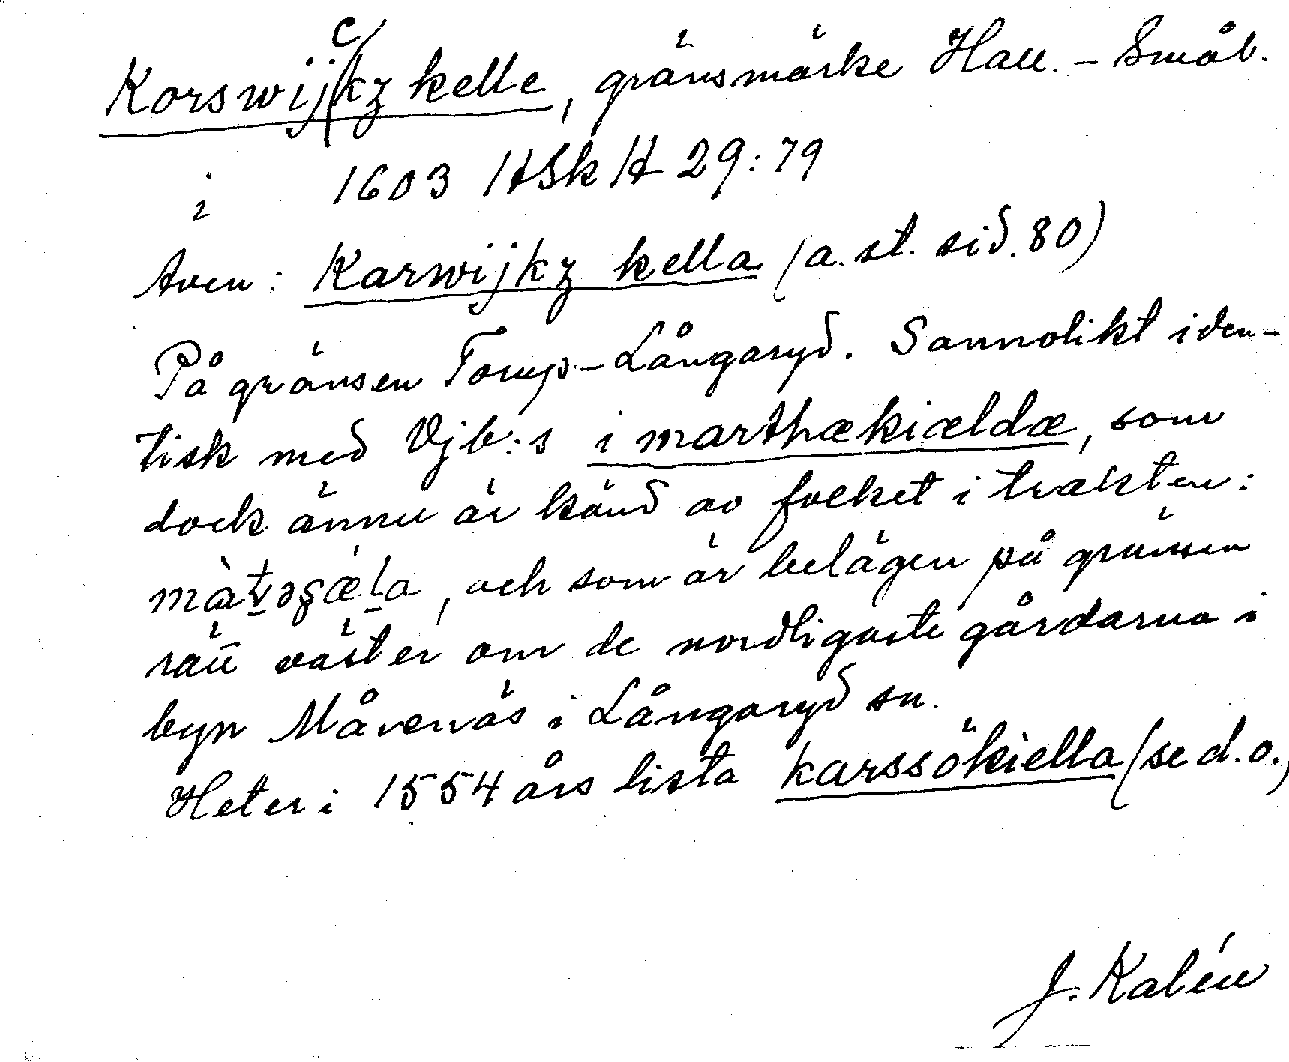 Korswijckz kelle, gränsmärke Hall. - Smål.
i 1603 HSkH 29:79
Även: Karwijkz kella (a. st. sid. 80)
På gränsen Torup - Långaryd. Sannolikt iden-
tisk med Vjb:s i marthækiældæ, som
dock ännu är känd av folket i trakten:
och som är belägen på gränsen
rätt väster om de nordligaste gårdarna i
byn Måvenäs i Långaryd sn.
Heter i 1554 års lista karssökiella (se d.o.)
J. Kalén